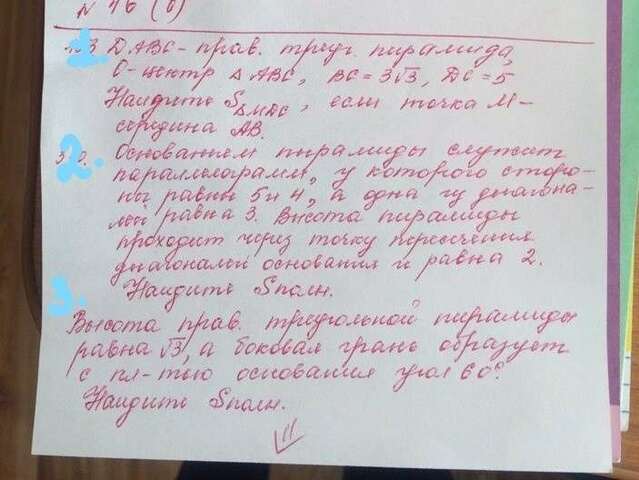 N 16 (б)
1. DABC - прав. треуг. пирамида,
O - центр △ ABC, BC = 3√3, DC = 5
Найдите S△MDC, если точка M -
середина AB.
2. Основанием пирамиды служит
параллелограмм, у которого сторо-
ны равны 5 и 4, а одна из диагона-
лей равна 3. Высота пирамиды
проходит через точку пересечения
диагоналей основания и равна 2.
Найдите Sполн.
3.
Высота прав. треугольной пирамиды
равна √3, а боковая грань образует
с пл-тью основания угол 60°.
Найдите Sполн.